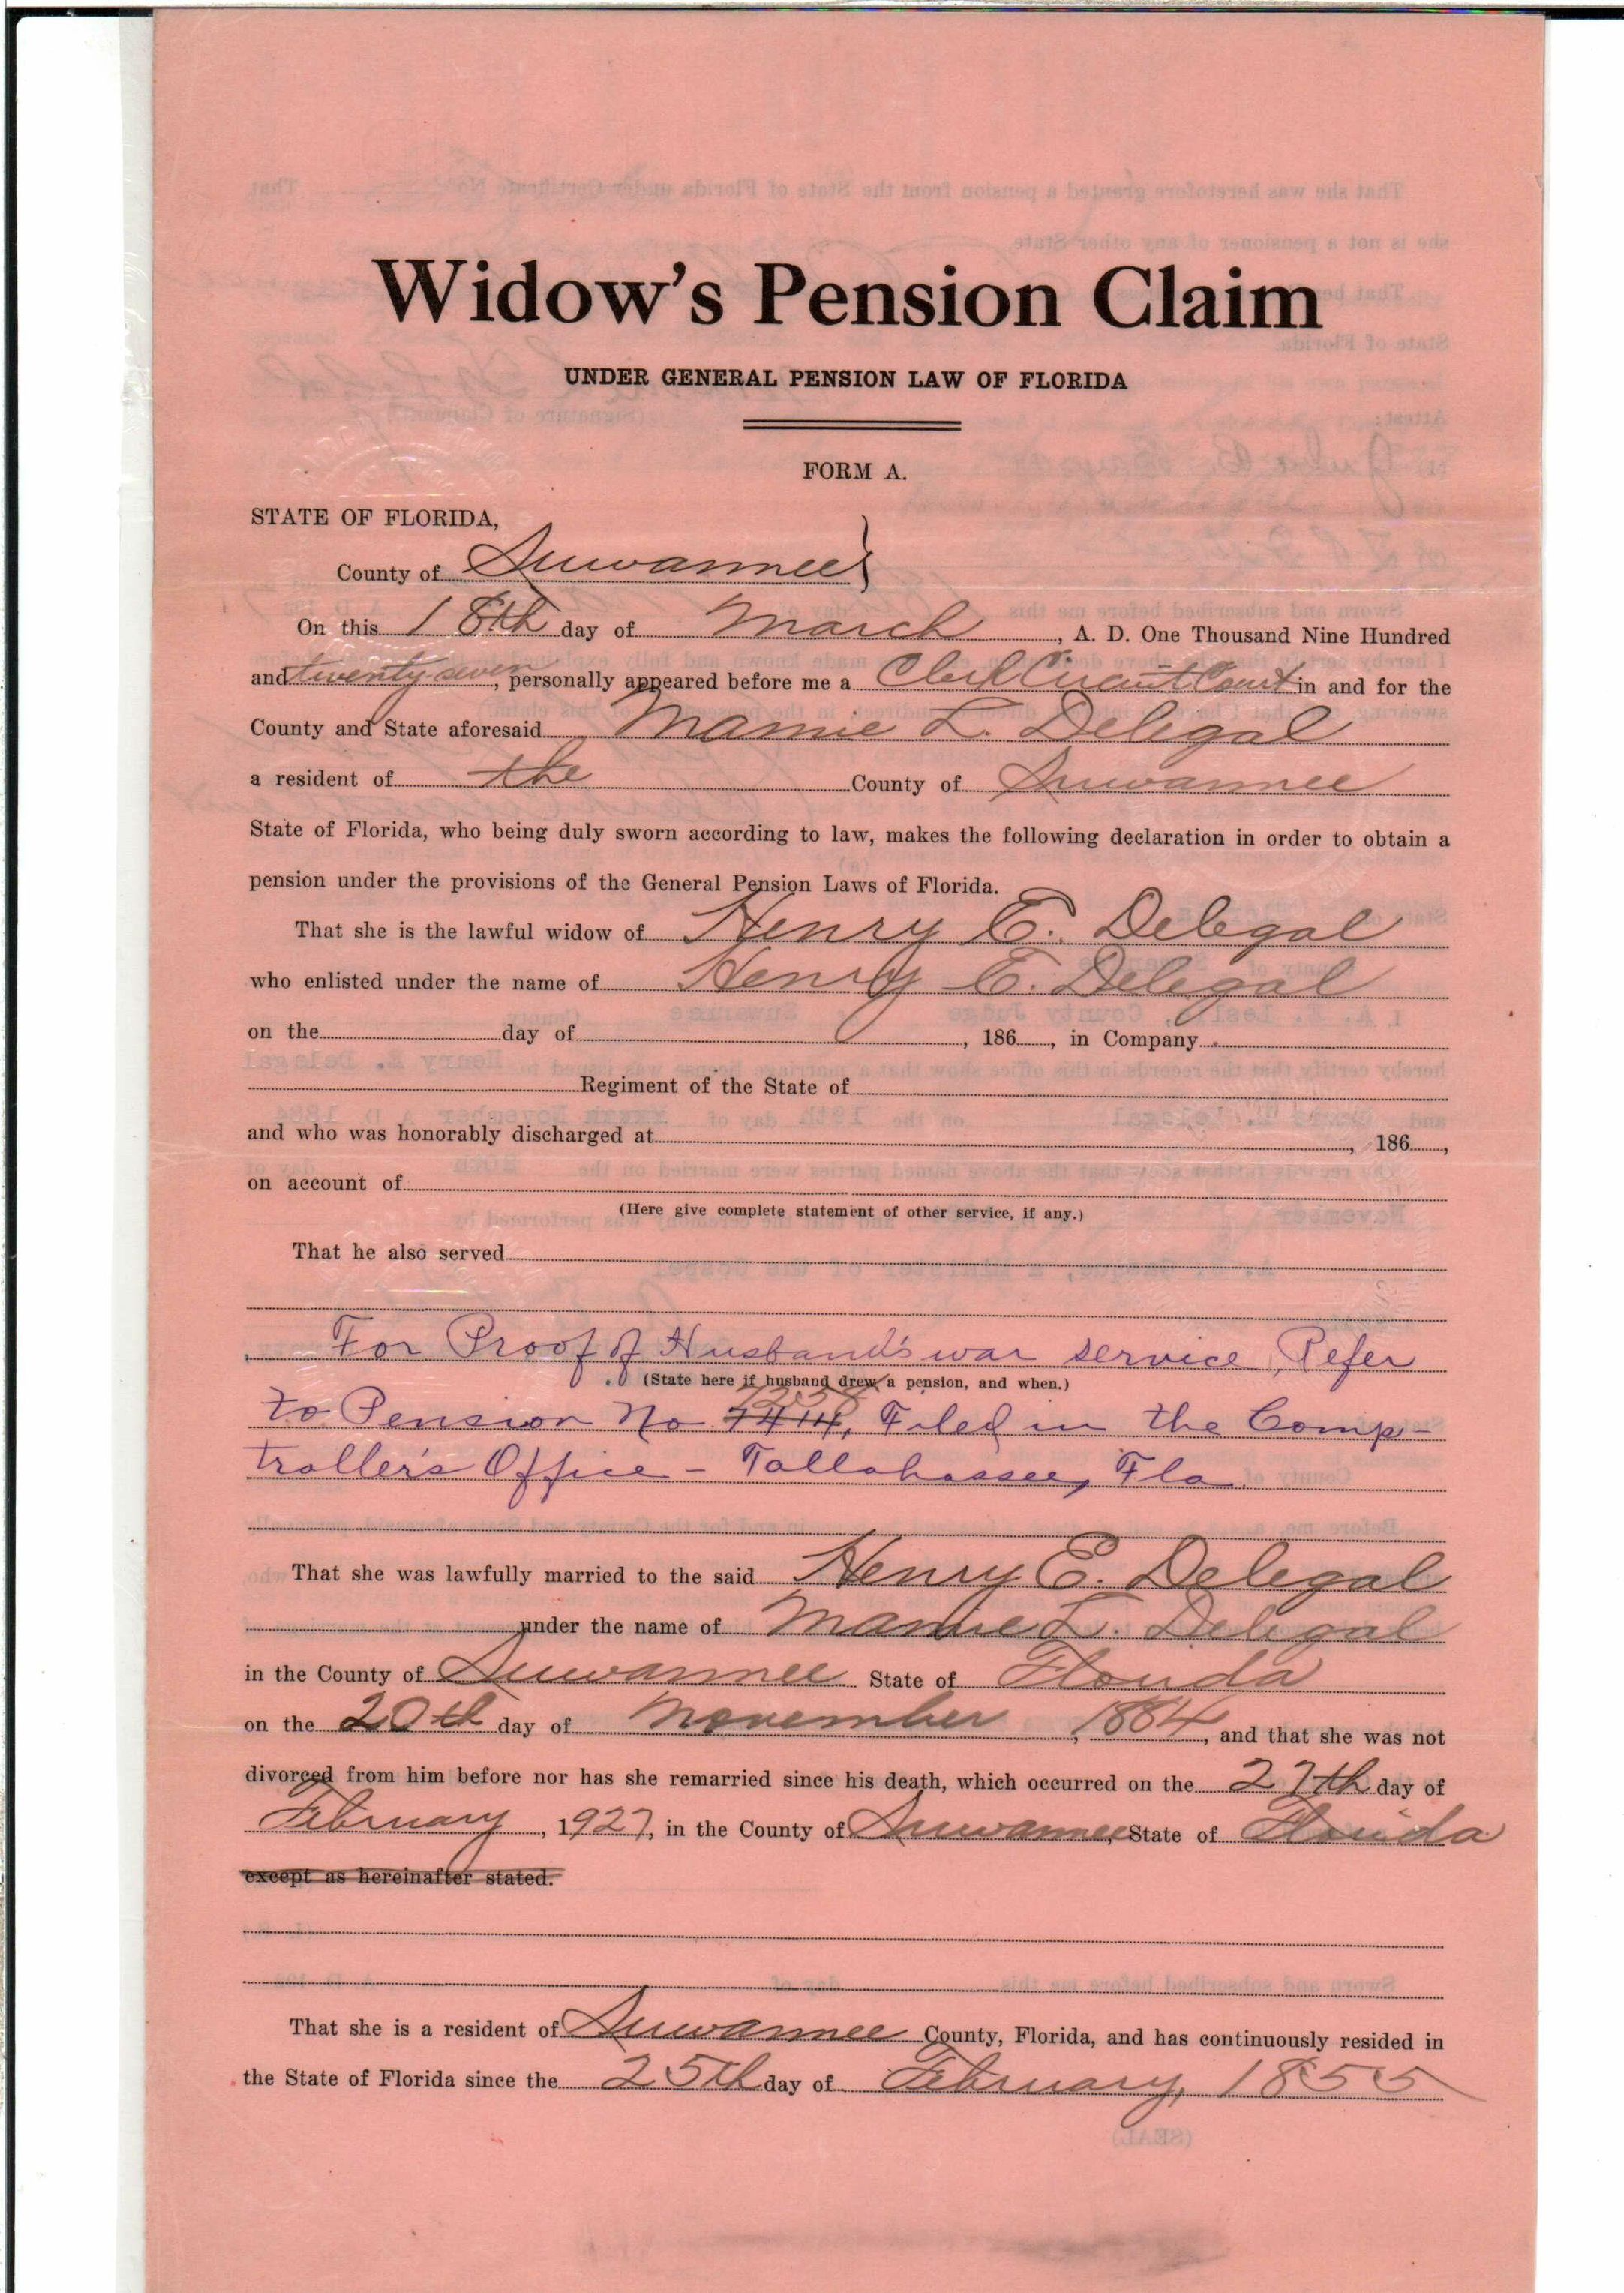 Widow's Pension Claim
UNDER GENERAL PENSION LAW OF FLORIDA
FORM A.
STATE OF FLORIDA,
County of Suwannee }
On this 18th day of March, A. D. One Thousand Nine Hundred
and twenty-seven, personally appeared before me a Clerk Circuit Court in and for the
County and State aforesaid Mamie L. Delegal
a resident of the County of Suwannee
State of Florida, who being duly sworn according to law, makes the following declaration in order to obtain a
pension under the provisions of the General Pension Laws of Florida.
That she is the lawful widow of Henry E. Delegal
who enlisted under the name of Henry E. Delegal
on the day of , 186 , in Company
Regiment of the State of
and who was honorably discharged at , 186 ,
on account of
(Here give complete statement of other service, if any.)
That he also served
For Proof of Husband's war service, Refer
(State here if husband drew a pension, and when.)
to Pension No 7414, Filed in the Comp-
troller's Office - Tallahassee, Fla.
That she was lawfully married to the said Henry E. Delegal
under the name of Mamie L. Delegal
in the County of Suwannee State of Florida
on the 20th day of November, 1884, and that she was not
divorced from him before nor has she remarried since his death, which occurred on the 27th day of
February, 1927, in the County of Suwannee, State of Florida
except as hereinafter stated.
That she is a resident of Suwannee County, Florida, and has continuously resided in
the State of Florida since the 25th day of February, 1855